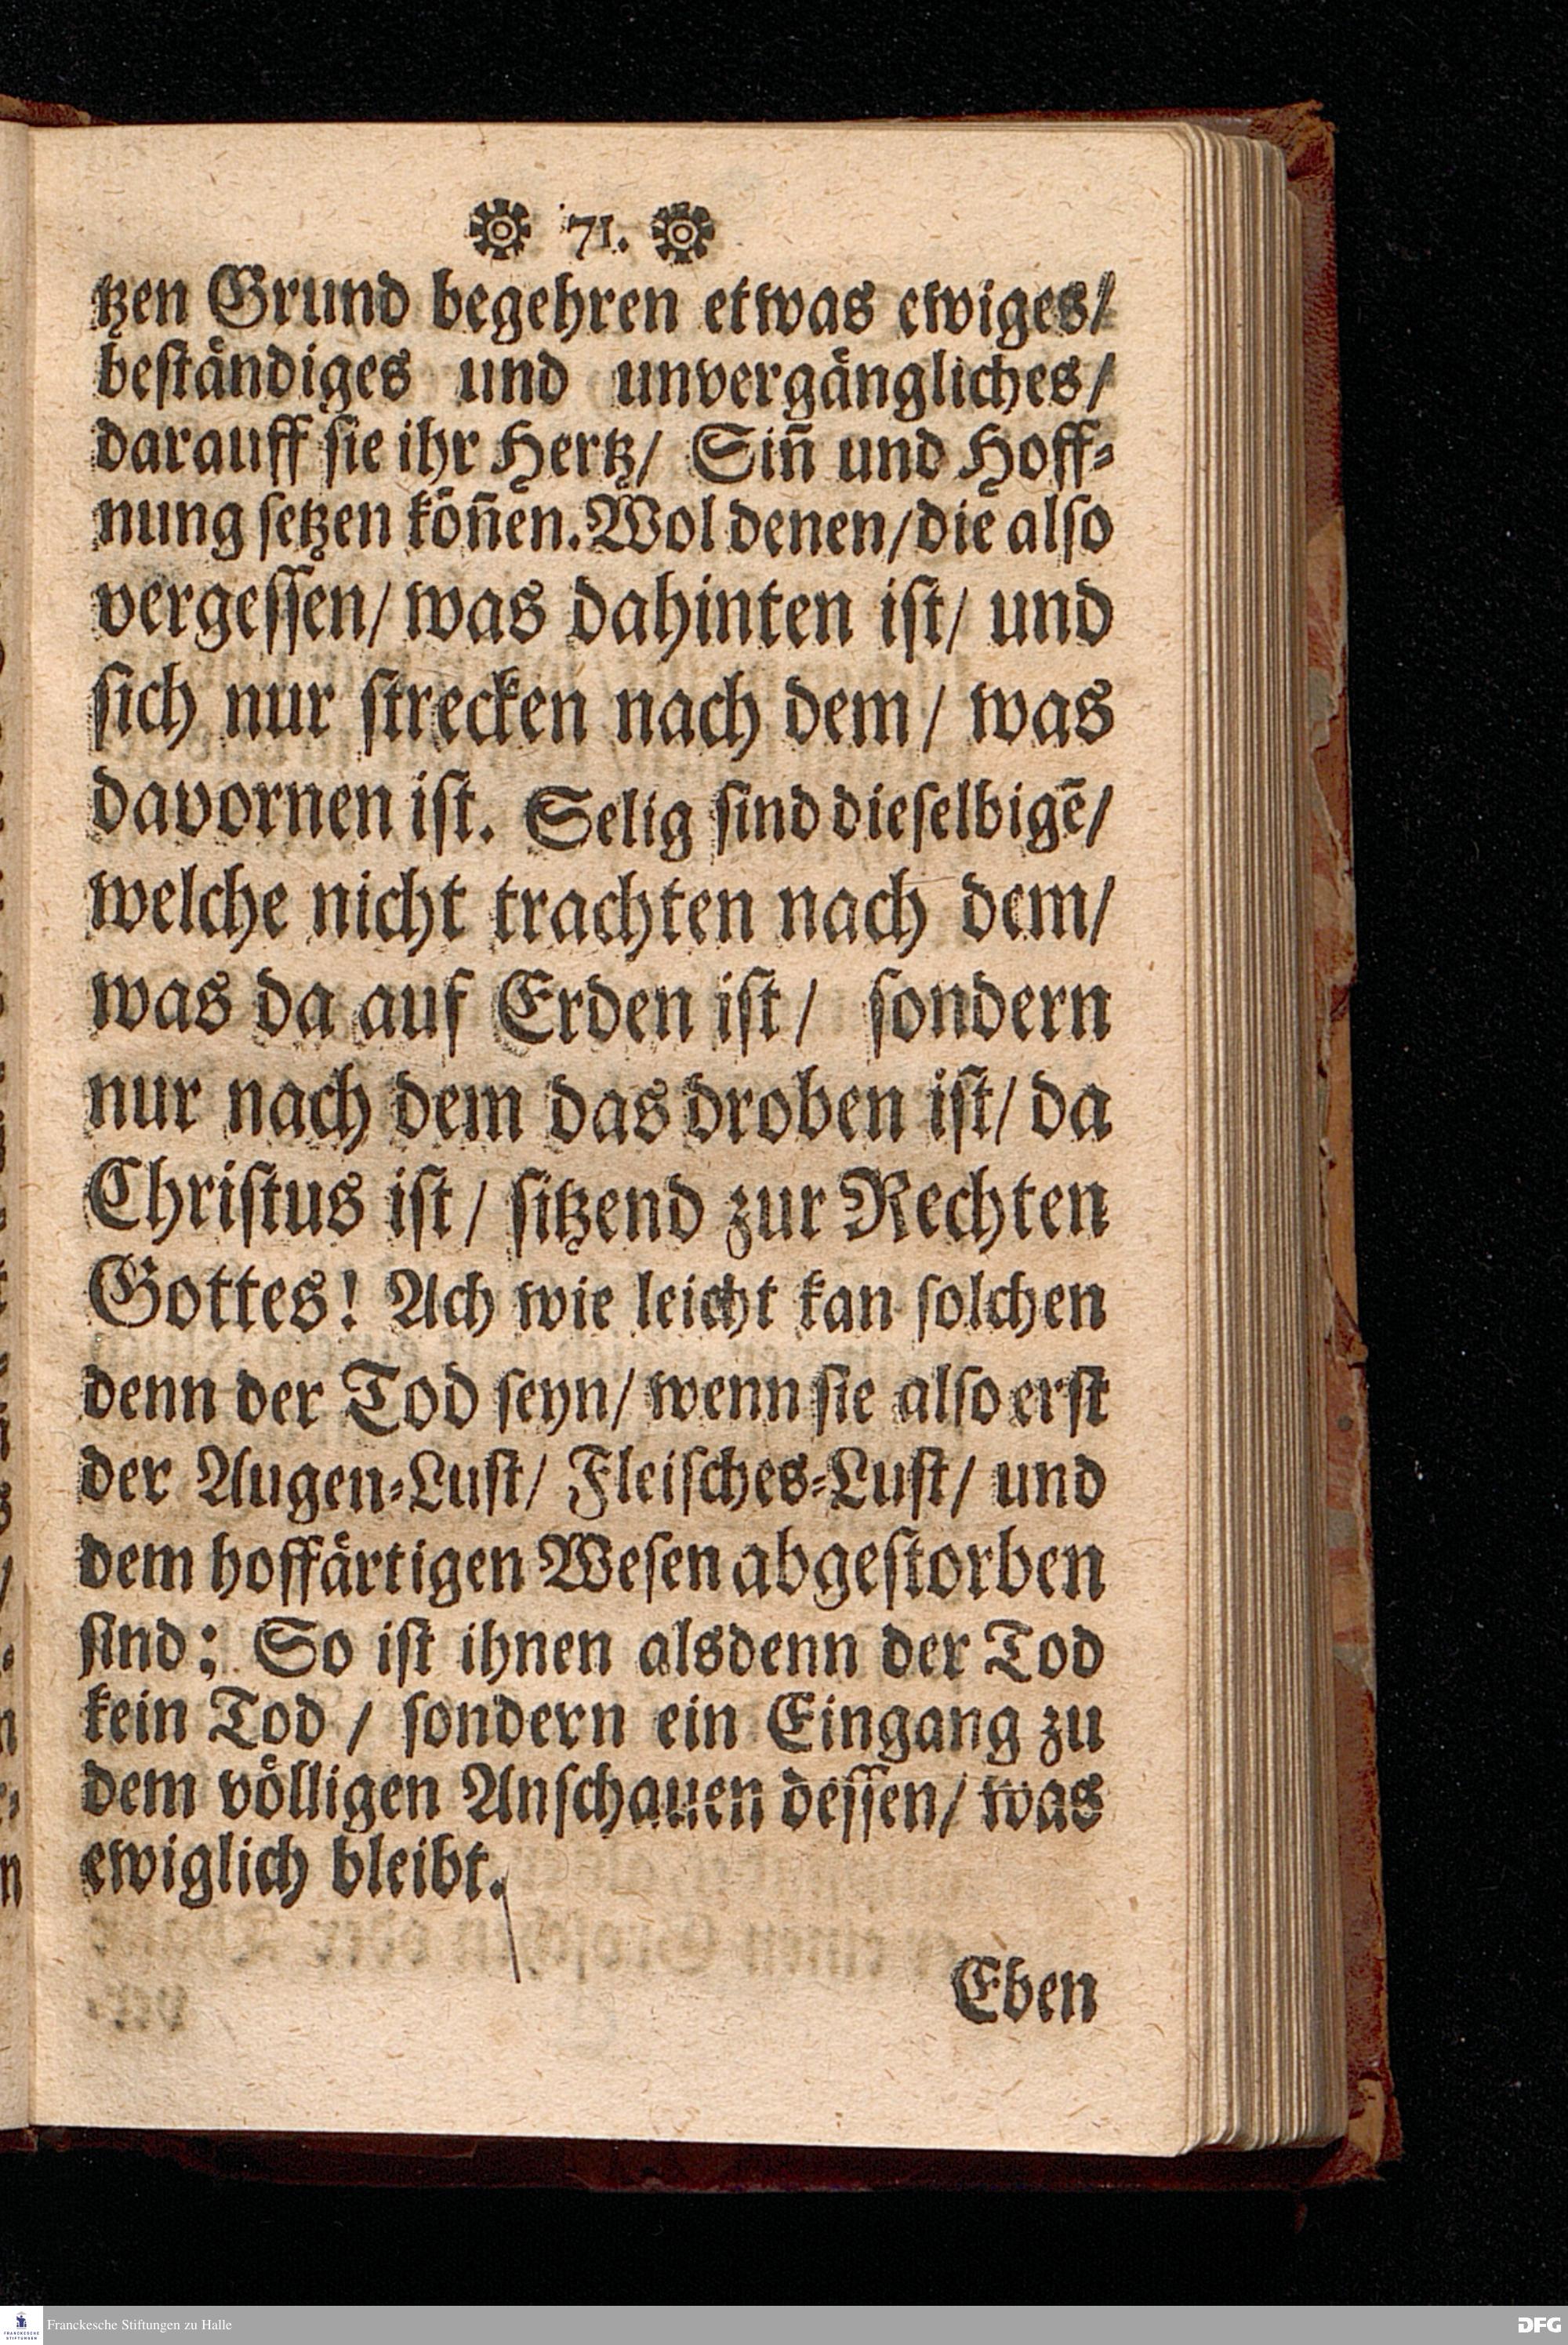 71.
tzen Grund begehren etwas ewiges/
beſtaͤndiges und unvergaͤngliches/
darauff ſie ihr Hertz/ Sin̄ und Hoff⸗
nung ſetzen koͤn̄en. Wol denen/ die alſo
vergeſſen/ was dahinten iſt/ und
ſich nur ſtrecken nach dem/ was
davornen iſt. Selig ſind dieſelbigē/
welche nicht trachten nach dem/
was da auf Erden iſt/ ſondern
nur nach dem das droben iſt/ da
Chriſtus iſt/ ſitzend zur Rechten
Gottes! Ach wie leicht kan ſolchen
denn der Tod ſeyn/ wenn ſie alſo erſt
der Augen⸗Luſt/ Fleiſches⸗Luſt/ und
dem hoffaͤrtigen Weſen abgeſtorben
ſind; So iſt ihnen alsdenn der Tod
kein Tod/ ſondern ein Eingang zu
dem voͤlligen Anſchauen deſſen/ was
ewiglich bleibt.
Eben
FRANCKESCHE
STIFTUNGEN
Franckesche Stiftungen zu Halle
DFG